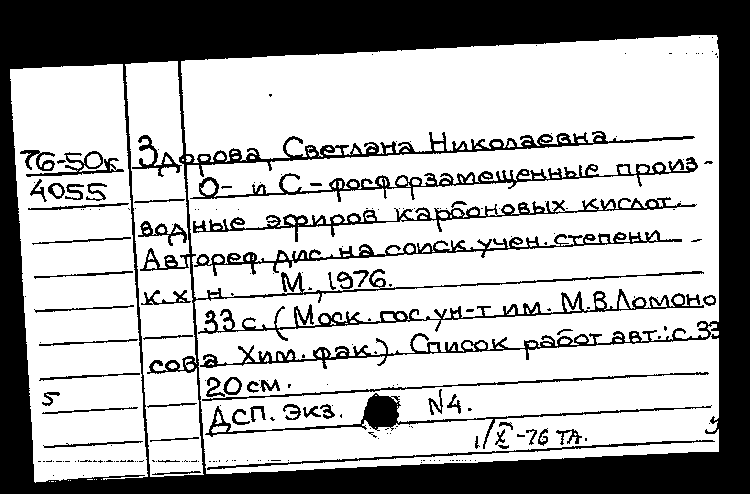 76-50к
4055
Здорова, Светлана Николаевна.
О- и С-фосфорзамещенные произ-
водные эфиров карбоновых кислот.
Автореф. дис. на соиск. учен. степени
к.х.н. М., 1976.
33 с. (Моск. гос. ун-т им. М.В.Ломоно
сова. Хим. фак.). Список работ авт.: с.33
20 см.
5
ДСП. Экз. N4.
1/X-76 ТА.